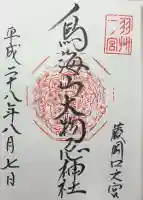 羽州
一ノ宮
鳥海山大物忌神社
蕨岡口之宮
平成二十八年八月七日